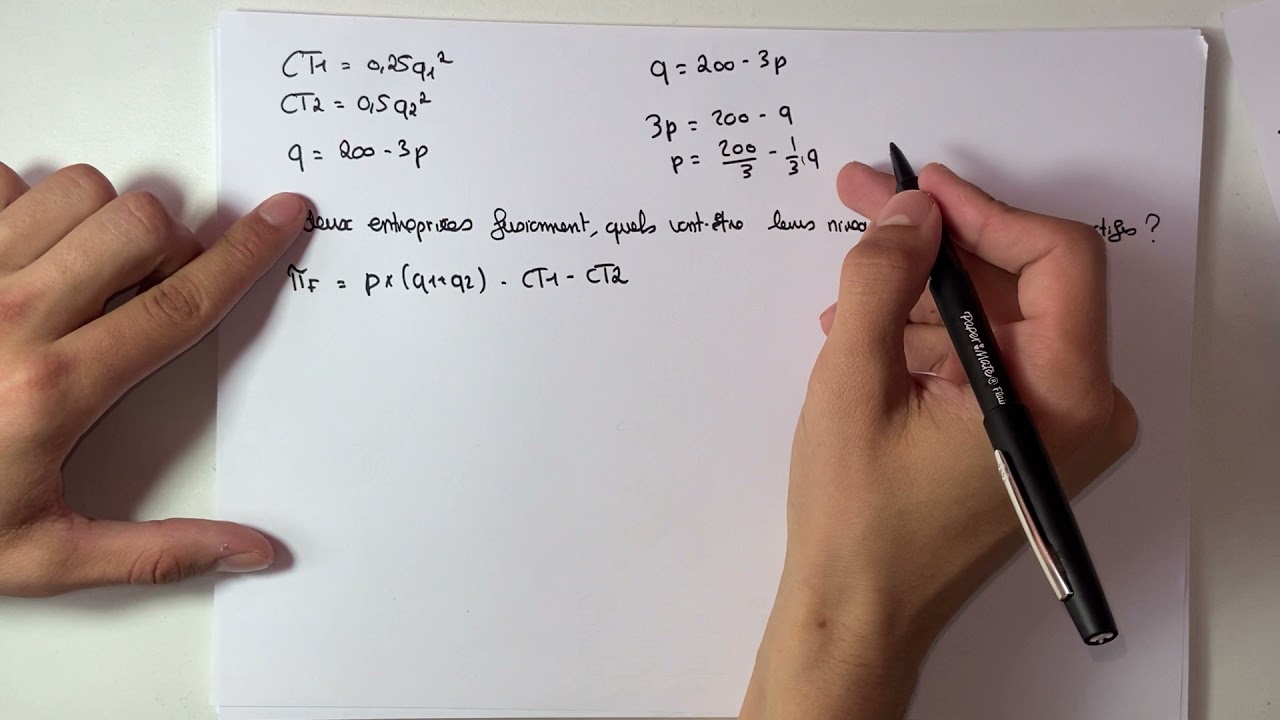 CT1 = 0,25q₁²
CT2 = 0,5q₂²
q = 200 - 3p
q = 200 - 3p
3p = 200 - q
p = 200/3 - 1/3 q
deux entreprises fusionnent, quels vont-être leurs ?
πF = p x (q1+q2) - CT1 - CT2
Paper Mate® Flair